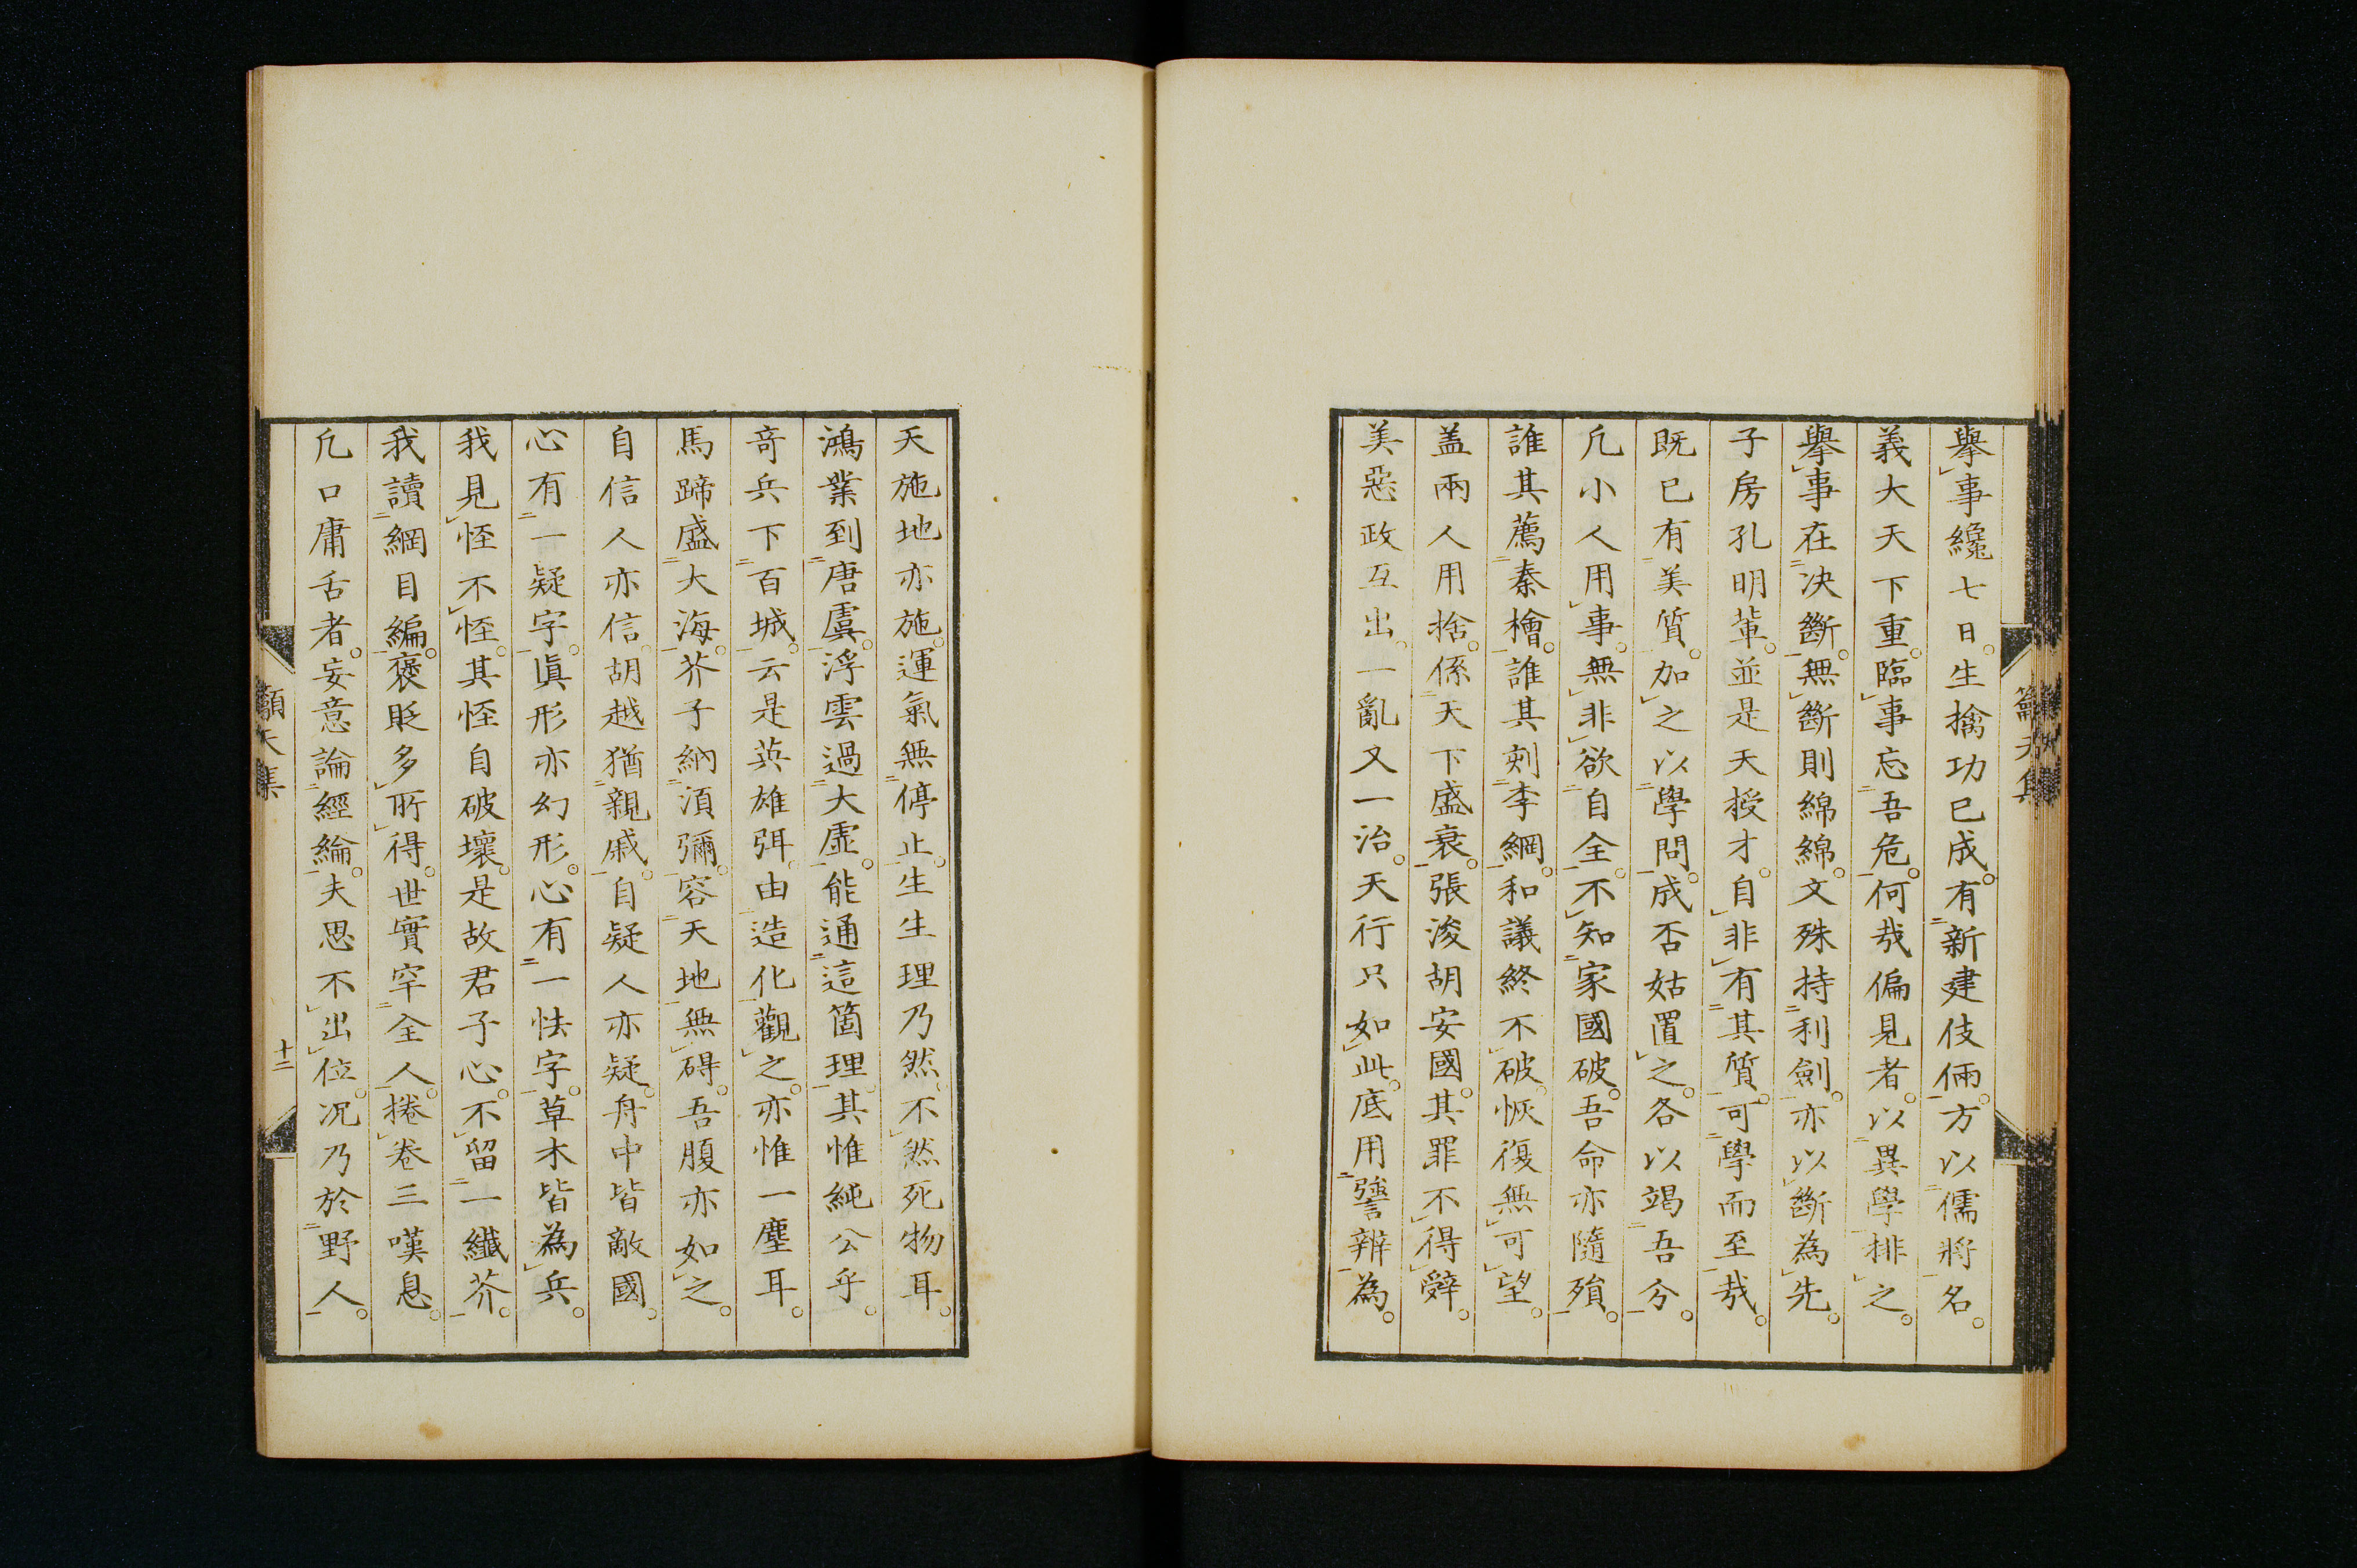 擧事纔七日。生擒功已成。有新建伎倆。方以儒將名。
義大天下重。臨事忘吾危。何哉偏見者。以異學排之。
擧事在決斷。無斷則綿綿。文殊持利劍。亦以斷為先。
子房孔明輩。並是天授才。自非有其質。可學而至哉。
既已有美質。加之以學問。成否姑置之。各以竭吾分。
凡小人用事。無非欲自全。不知家國破。吾命亦隨殞。
誰其薦秦檜。誰其剡李綱。和議終不破。恢復無可望。
盖兩人用捨。係天下盛衰。張浚胡安國。其罪不得辭。
美惡政互出。一亂又一治。天行只如此。底用譸辨為。
天施地亦施。運氣無停止。生生理乃然。不然死物耳。
鴻業到唐虞。浮雲過大虛。能通這箇理。其惟純公乎。
奇兵下百城。云是英雄弭。由造化觀之。亦惟一塵耳。
馬蹄盛大海。芥子納湏彌。容天地無碍。吾腹亦如之。
自信人亦信。胡越猶親戚。自疑人亦疑。舟中皆敵國。
心有一疑字。眞形亦幻形。心有一怯字。草木皆為兵。
我見恠不恠。其恠自破壞。是故君子心。不留一纖芥。
我讀綱目編。褒貶多所得。世實罕全人。捲卷三嘆息。
凡口庸舌者。妄意論經綸。夫思不出位。況乃於野人。
十二